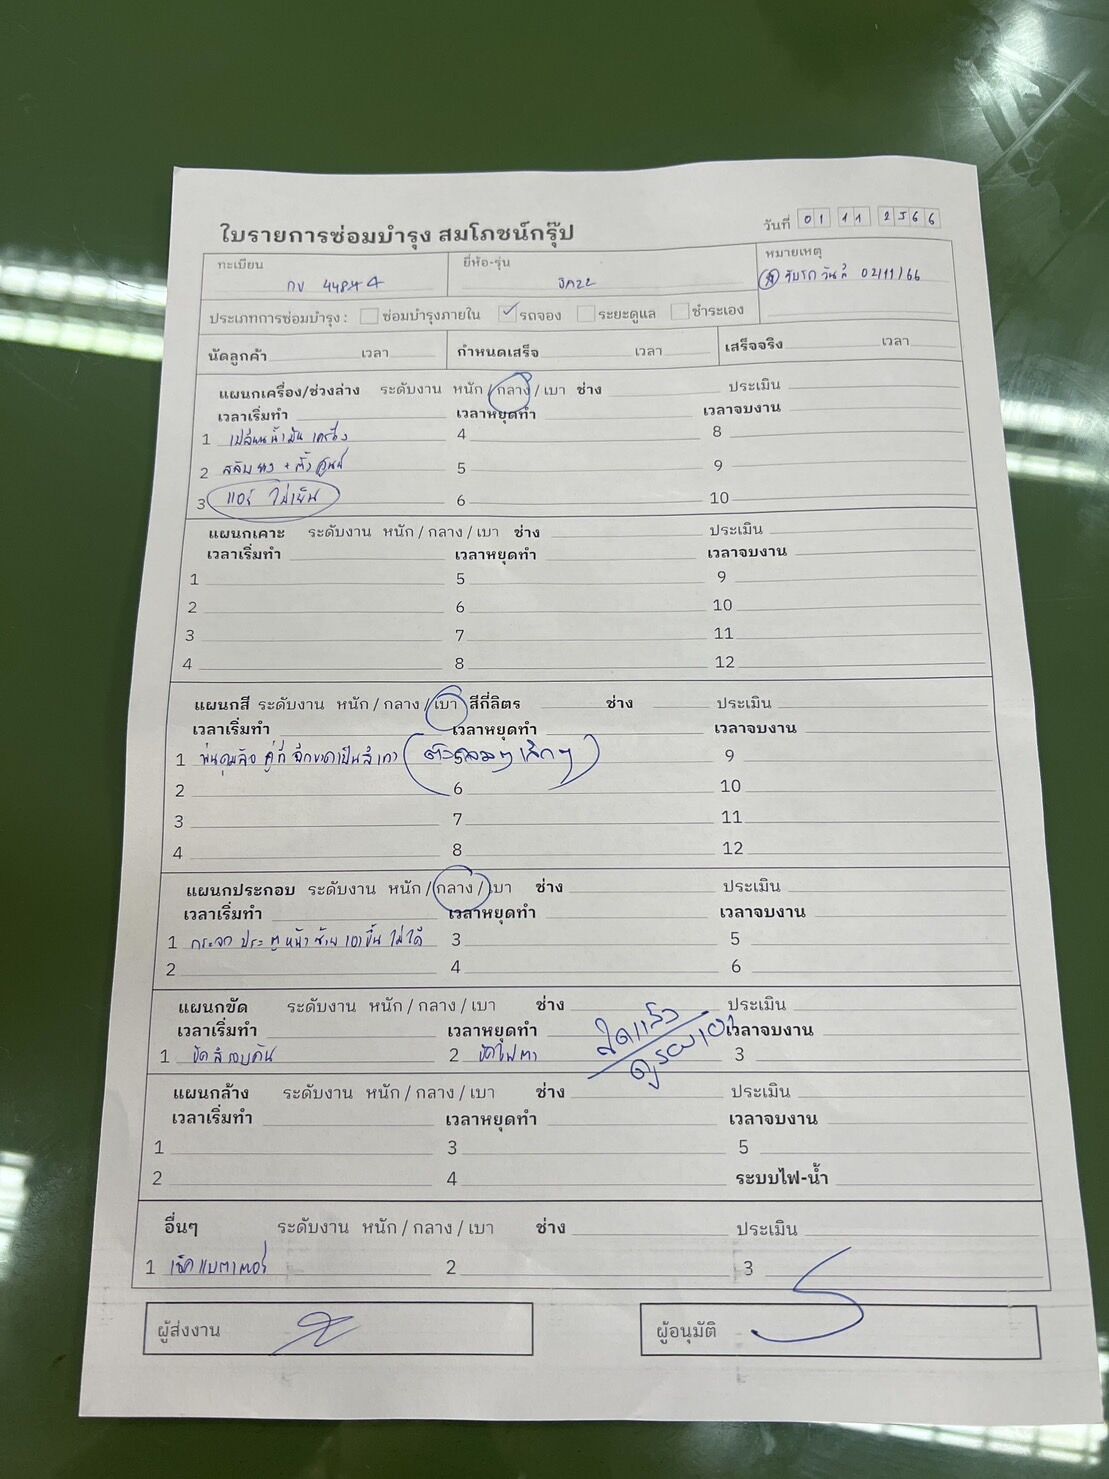 ใบรายการซ่อมบำรุง สมโภชน์กรุ๊ป
วันที่ 01 11 2566
ทะเบียน ยี่ห้อ-รุ่น หมายเหตุ
กข JAZZ รับรถ วันที่ 02/11/66
ประเภทการซ่อมบำรุง : ซ่อมบำรุงภายใน รถจอง ระยะดูแล ชำระเอง
นัดลูกค้า เวลา กำหนดเสร็จ เวลา เสร็จจริง เวลา
แผนกเครื่อง/ช่วงล่าง ระดับงาน หนัก / กลาง / เบา ช่าง ประเมิน
เวลาเริ่มทำ เวลาหยุดทำ เวลาจบงาน
1 เปลี่ยนน้ำมันเครื่อง 4 8
2 สลับยาง + ตั้งศูนย์ 5 9
3 แอร์ ไม่เย็น 6 10
แผนกเคาะ ระดับงาน หนัก / กลาง / เบา ช่าง ประเมิน
เวลาเริ่มทำ เวลาหยุดทำ เวลาจบงาน
1 5 9
2 6 10
3 7 11
4 8 12
แผนกสี ระดับงาน หนัก / กลาง / เบา สีกี่ลิตร ช่าง ประเมิน
เวลาเริ่มทำ เวลาหยุดทำ เวลาจบงาน
1 พ่นดุมล้อ คู่ที่ฉีกขาดเป็นสีเทา (ตัวกลมๆ เล็กๆ) 9
2 6 10
3 7 11
4 8 12
แผนกประกอบ ระดับงาน หนัก / กลาง / เบา ช่าง ประเมิน
เวลาเริ่มทำ เวลาหยุดทำ เวลาจบงาน
1 กระจก ประตูหน้าซ้าย เอาขึ้นไม่ได้ 3 5
2 4 6
แผนกขัด ระดับงาน หนัก / กลาง / เบา ช่าง ประเมิน
เวลาเริ่มทำ เวลาหยุดทำ เวลาจบงาน
1 ขัดสีรอบคัน 2 ขัดไฟตา 3
แผนกล้าง ระดับงาน หนัก / กลาง / เบา ช่าง ประเมิน
เวลาเริ่มทำ เวลาหยุดทำ เวลาจบงาน
1 3 5
2 4 ระบบไฟ-น้ำ
อื่นๆ ระดับงาน หนัก / กลาง / เบา ช่าง ประเมิน
1 เช็คแบตเตอรี่ 2 3
ผู้ส่งงาน ผู้อนุมัติ